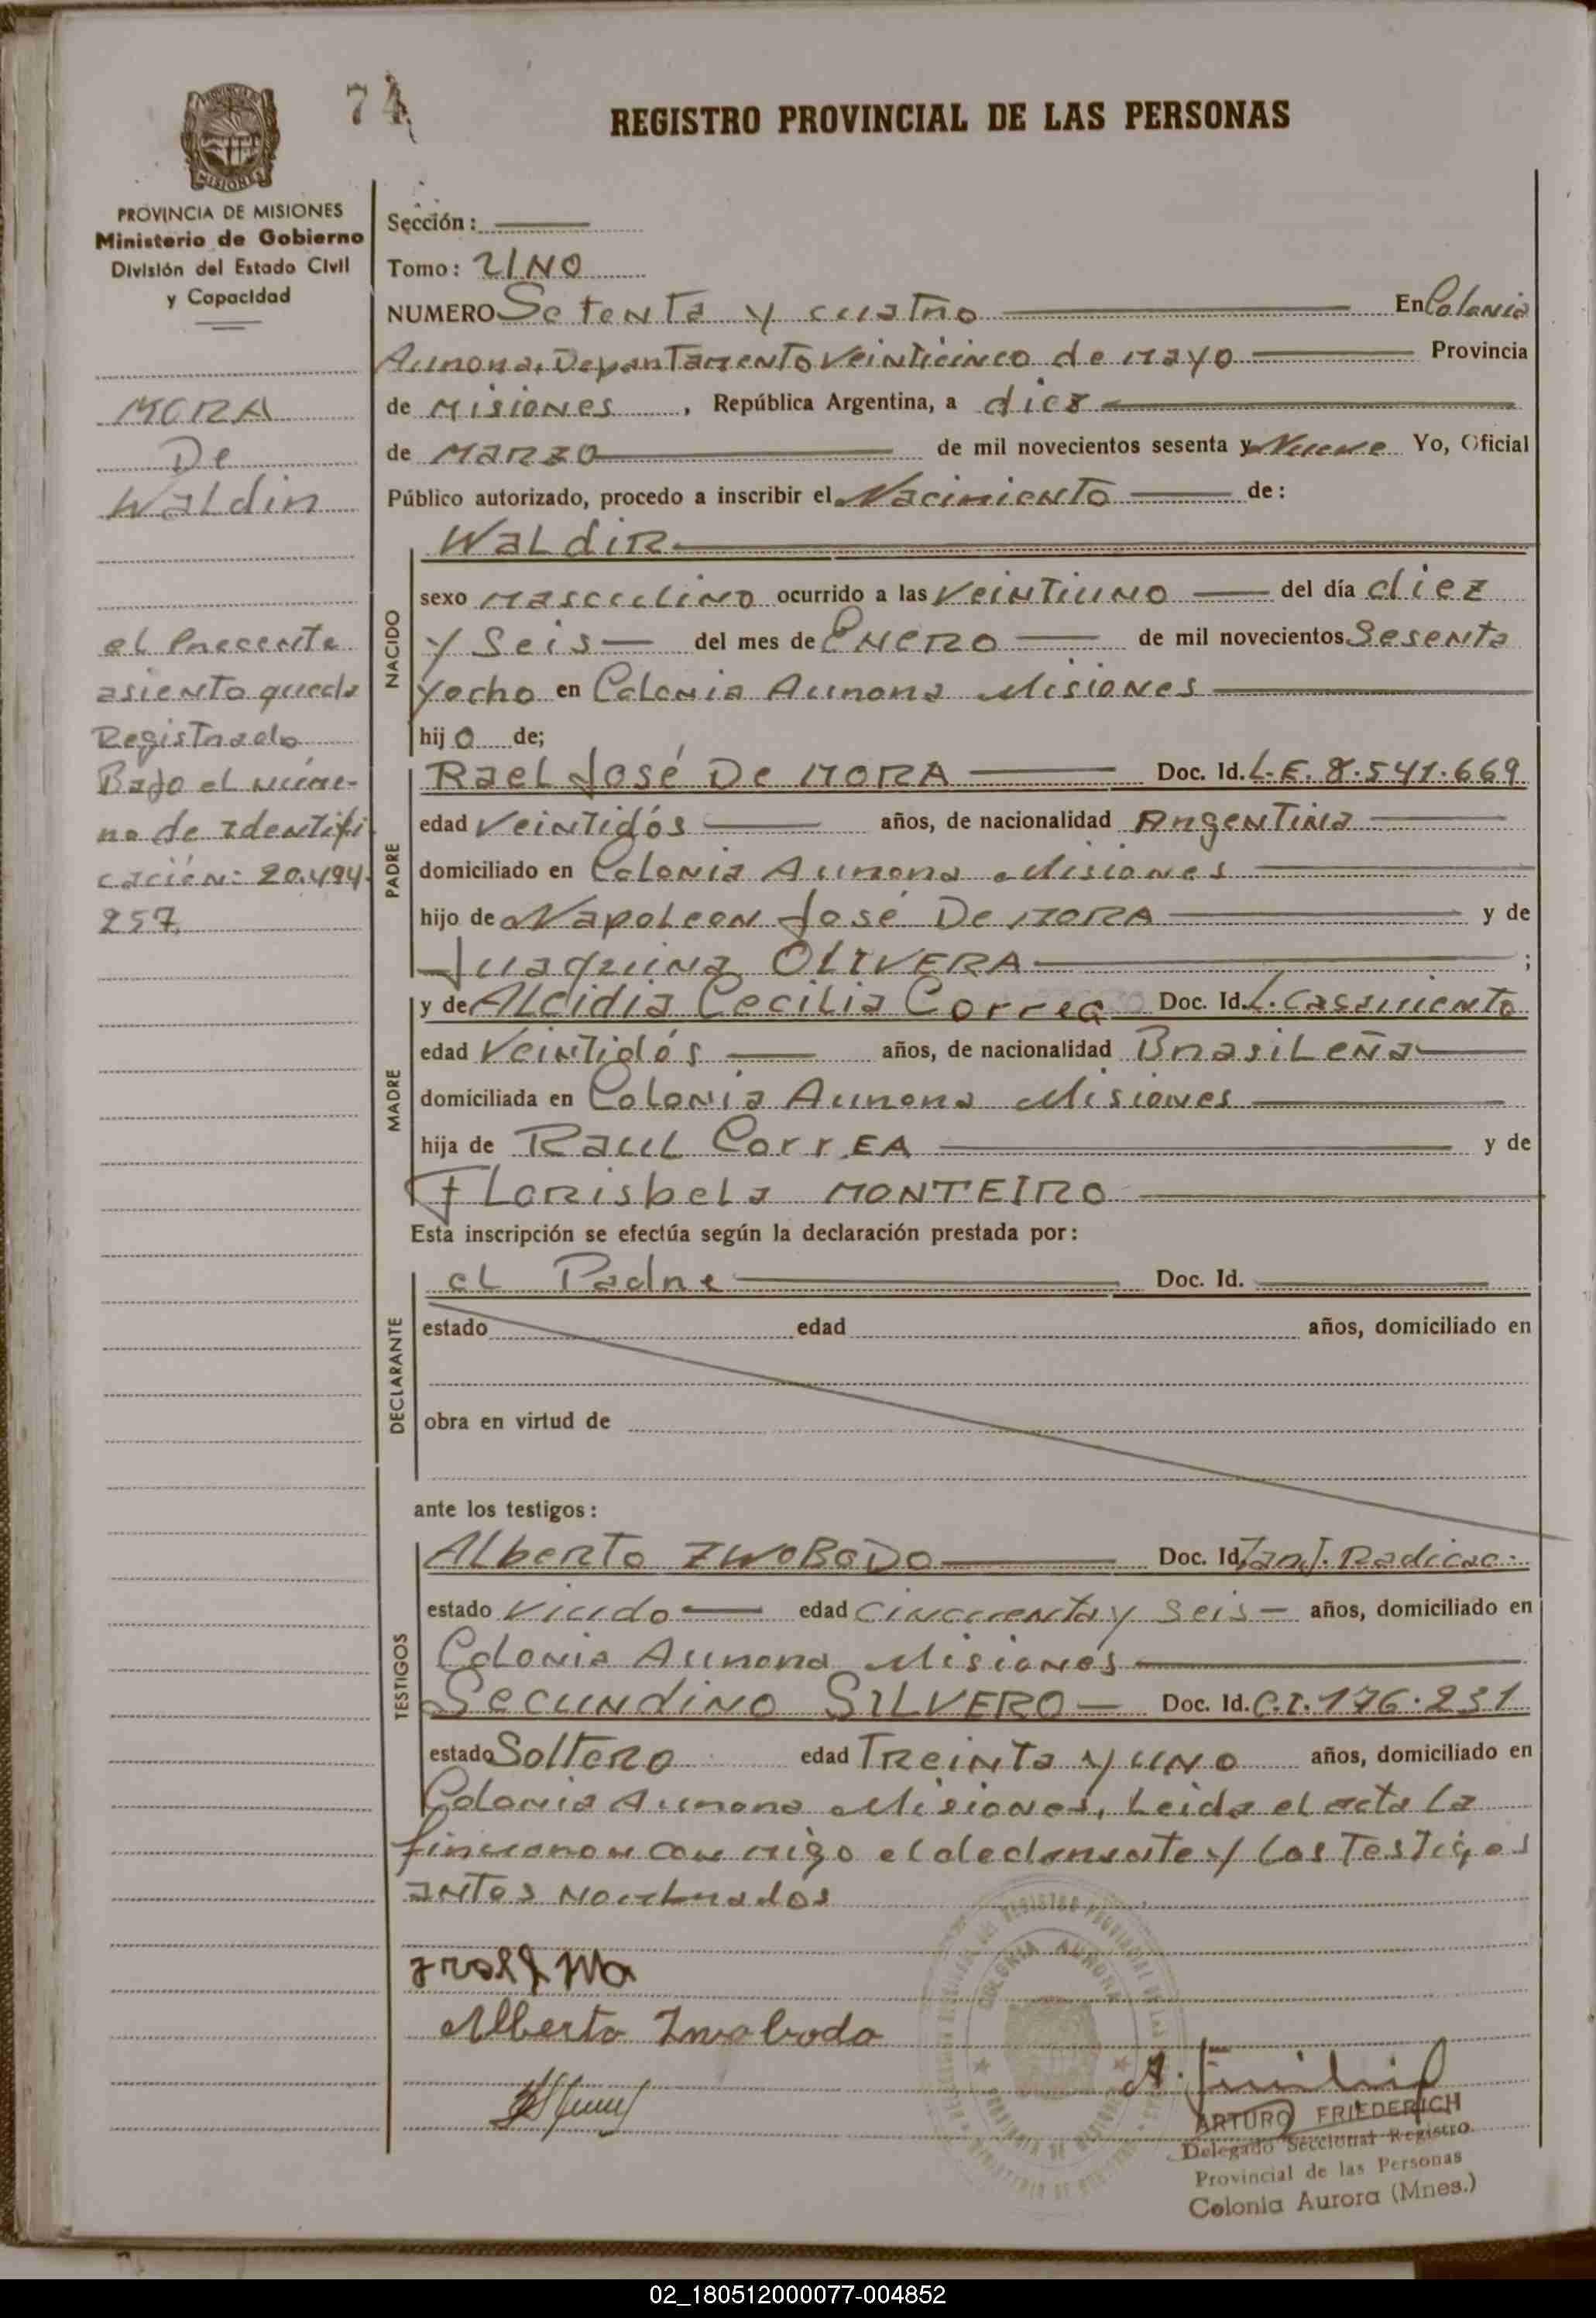 74
REGISTRO PROVINCIAL DE LAS PERSONAS
MISIONES
PROVINCIA DE MISIONES
Ministerio de Gobierno
División del Estado Civil
y Capacidad
MORA
De
Waldir
el Presente
asiento queda
Registrado
Bajo el núme-
ro de Identifi
cación: 20.494.
257
Sección:
Tomo: UNO
NUMERO Setenta y cuatro En Colonia
Aurora, Departamento Veinticinco de Mayo Provincia
de Misiones, República Argentina, a diez
de Marzo de mil novecientos sesenta y Nueve Yo, Oficial
Público autorizado, procedo a inscribir el Nacimiento de:
NACIDO
Waldir
sexo Masculino ocurrido a las Veintiuno del día diez
y Seis del mes de Enero de mil novecientos Sesenta
yocho en Colonia Aurora Misiones
hijo de;
PADRE
Rael José De MORA Doc. Id. L.E. 8.541.669
edad Veintidós años, de nacionalidad Argentina
domiciliado en Colonia Aurora Misiones
hijo de Napoleon José De MORA y de
Juaquina OLIVERA ;
MADRE
y de Alcidia Cecilia Correa Doc. Id. L. Casamiento
edad Veintidós años, de nacionalidad Brasileña
domiciliada en Colonia Aurora Misiones
hija de Raul CorrEA y de
Florisbela MONTEIRO
Esta inscripción se efectúa según la declaración prestada por:
DECLARANTE
el Padre Doc. Id.
estado edad años, domiciliado en
obra en virtud de
ante los testigos:
TESTIGOS
Alberto ZWOBODO Doc. Id. Tarj. Radicac.
estado Viudo edad Cincuenta y Seis años, domiciliado en
Colonia Aurora Misiones
Secundino SILVERO Doc. Id. C.I. 176.231
estado Soltero edad Treinta y uno años, domiciliado en
Colonia Aurora Misiones, Leida el acta la
firmaron con migo el declarante y los Testigos
antes nombrados
Alberto Zwobodo
COLONIA AURORA
ARTURO FRIEDERICH
Delegado Seccional Registro
Provincial de las Personas
Colonia Aurora (Mnes.)
02_180512000077-004852